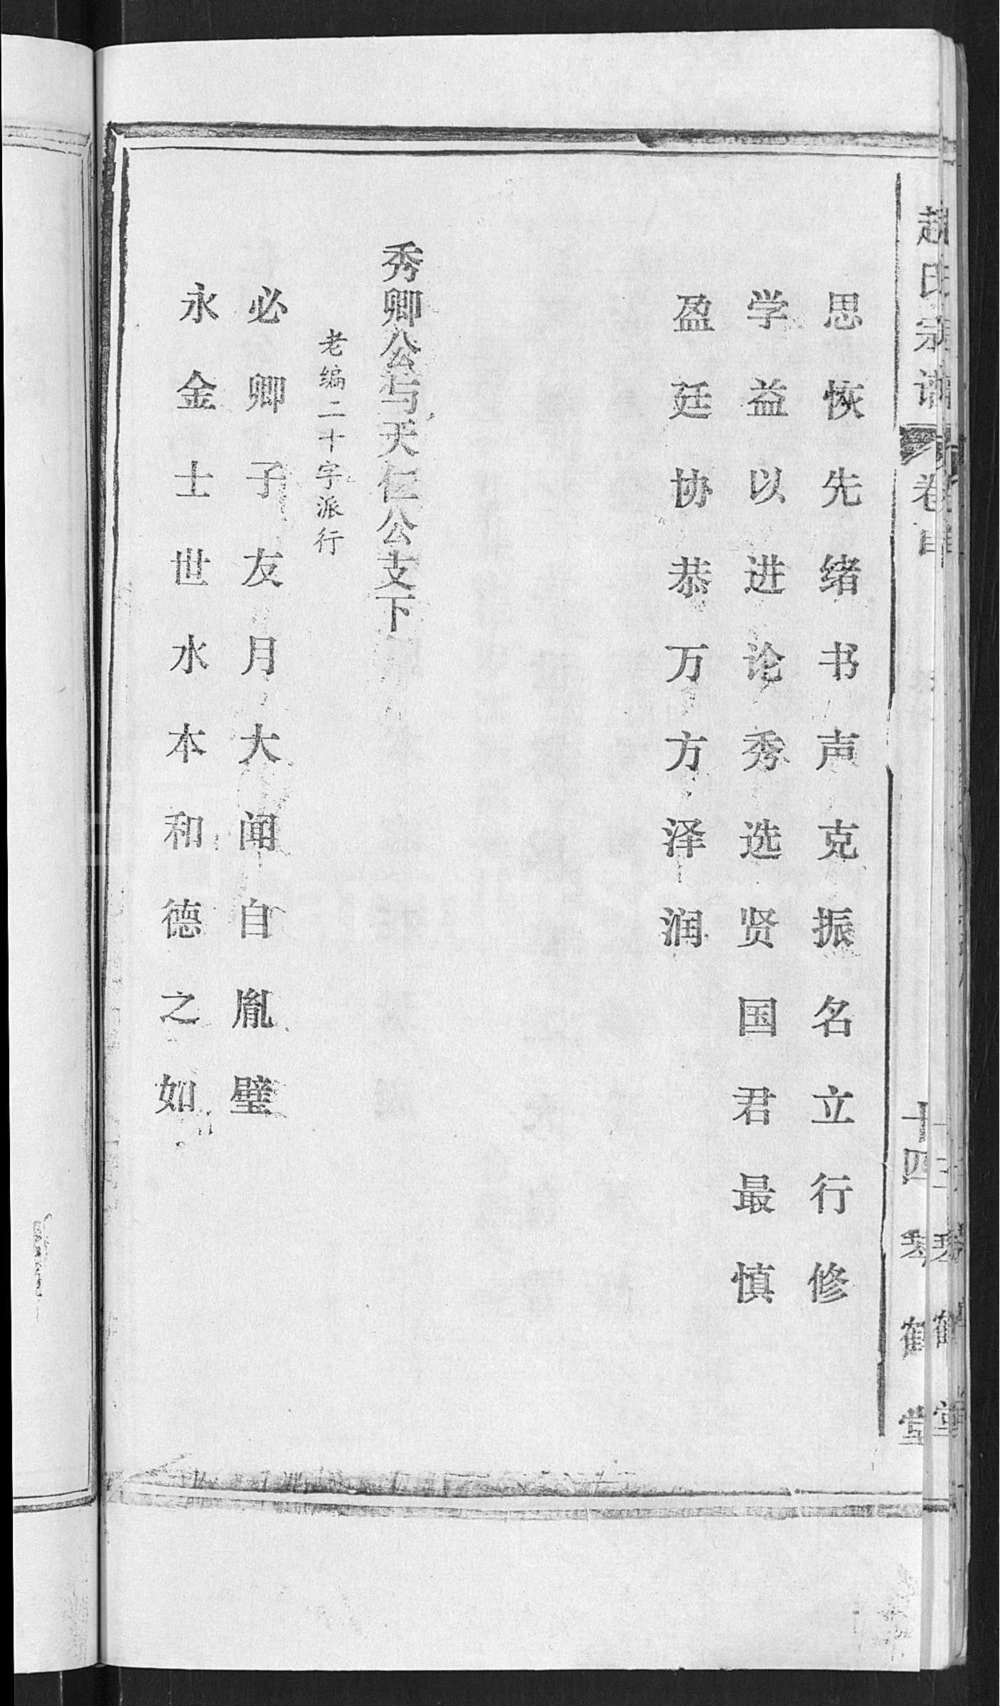 赵氏宗谱
卷首
十四
琴鹤堂
思恢先绪书声克振名立行修
学益以进论秀选贤国君最慎
盈廷协恭万方泽润
秀卿公与天仁公支下
老编二十字派行
必卿子友月大闻自胤璧
永金士世水本和德之如